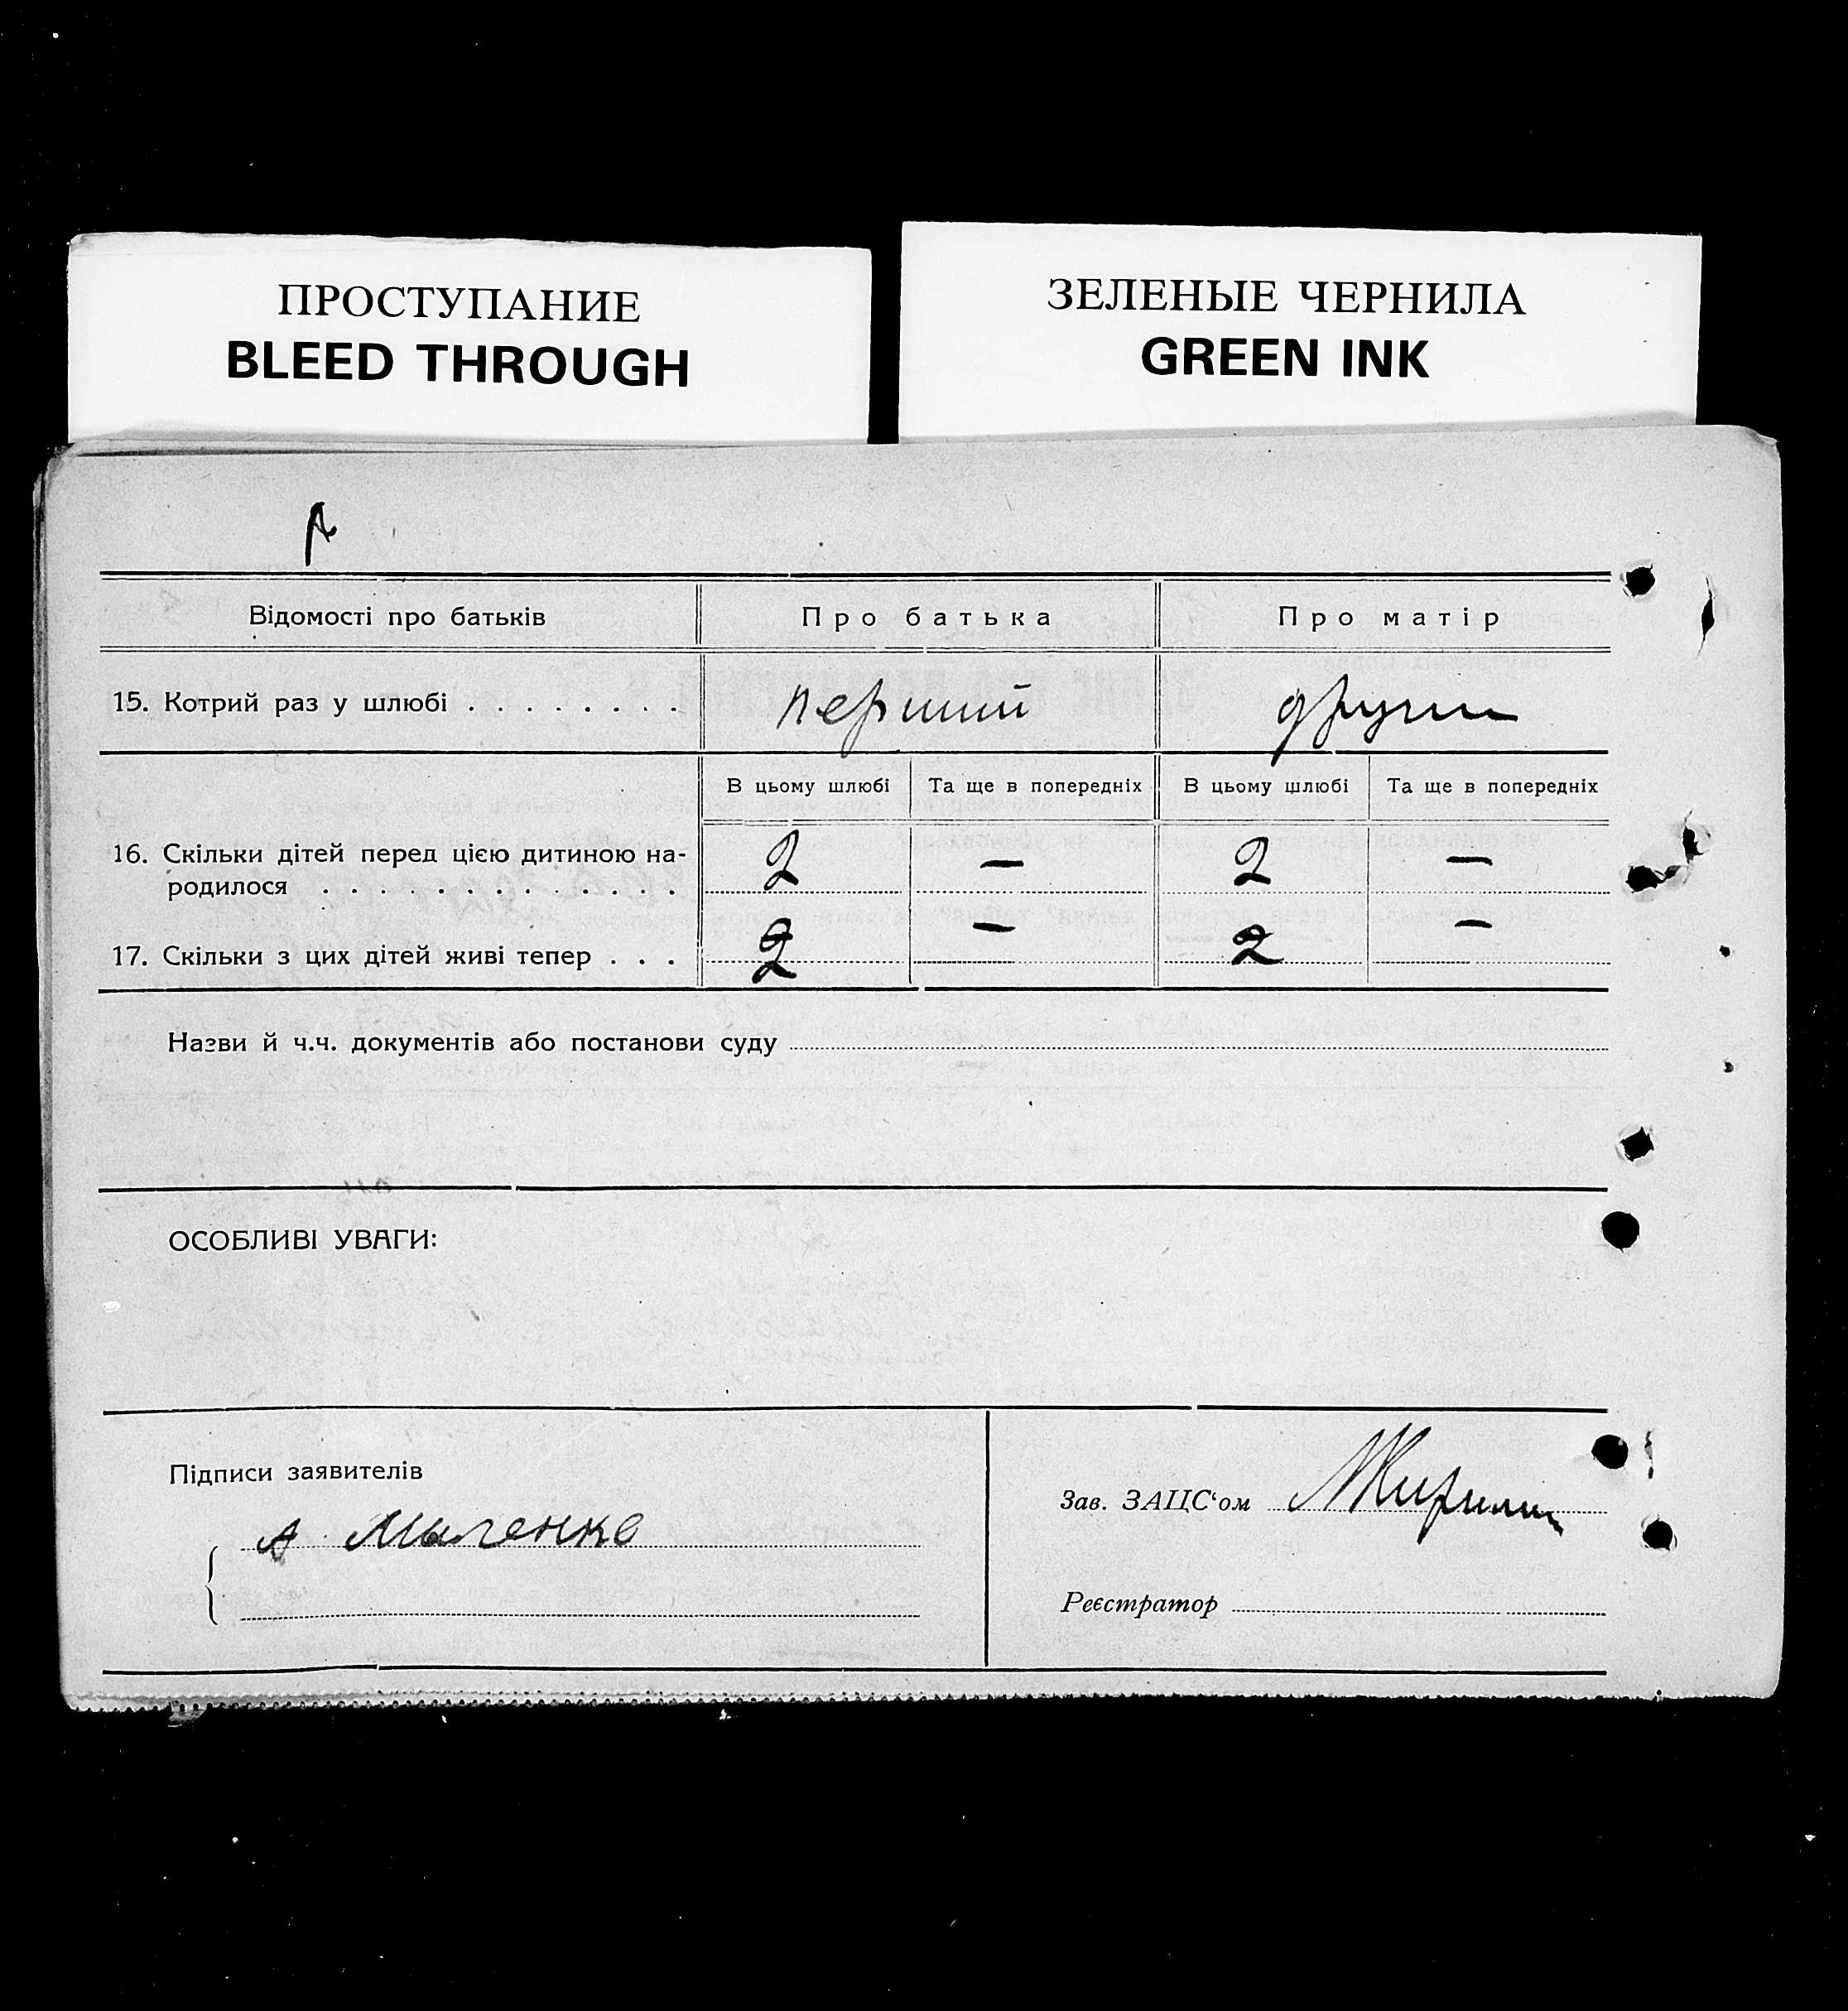 ПРОСТУПАНИЕ
BLEED THROUGH
ЗЕЛЕНЫЕ ЧЕРНИЛА
GREEN INK
Відомості про батьків Про батька Про матір
15. Котрий раз у шлюбі . . . . . . . . перший други
В цьому шлюбі Та ще в попередніх В цьому шлюбі Та ще в попередніх
16. Скільки дітей перед цією дитиною на-
родилося . . . . . . . . . . . . . 2 — 2 —
17. Скільки з цих дітей живі тепер . . . 2 — 2 —
Назви й ч.ч. документів або постанови суду
ОСОБЛИВІ УВАГИ:
Підписи заявителів
А
Зав. ЗАЦС‘ом
Реєстратор